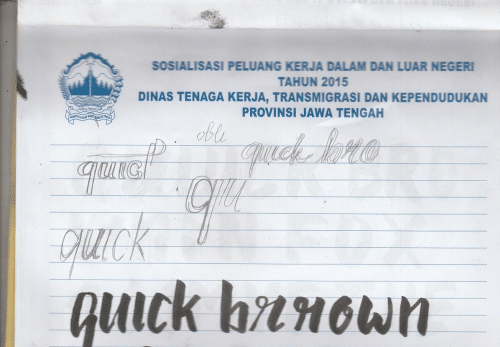 SOSIALISASI PELUANG KERJA DALAM DAN LUAR NEGERI
TAHUN 2015
DINAS TENAGA KERJA, TRANSMIGRASI DAN KEPENDUDUKAN
PROVINSI JAWA TENGAH
quick bro
qu
quick
quick brrrown